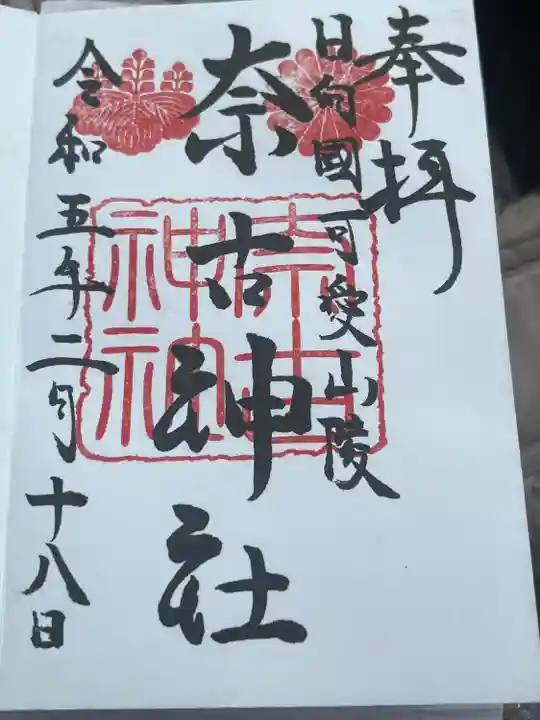 奉拝
日向國可愛山陵
奈古神社
奈古
神社
令和五年二月十八日